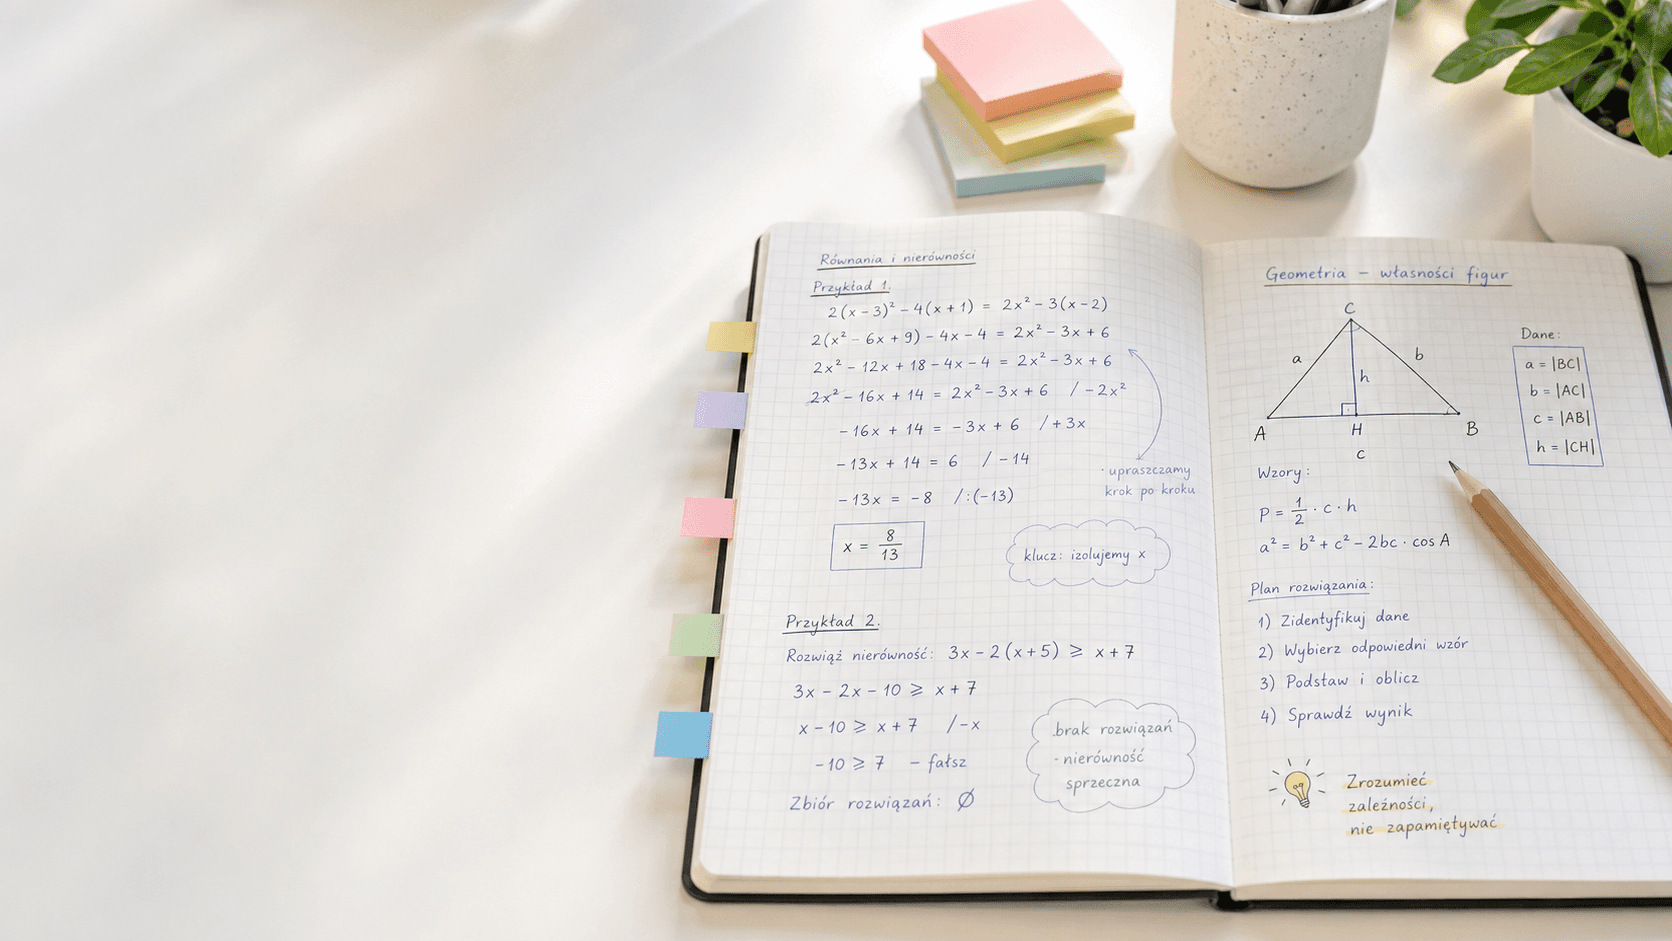 Równania i nierówności
Przykład 1.
2(x-3)² - 4(x+1) = 2x² - 3(x-2)
2(x² - 6x + 9) - 4x - 4 = 2x² - 3x + 6
2x² - 12x + 18 - 4x - 4 = 2x² - 3x + 6
2x² - 16x + 14 = 2x² - 3x + 6 / -2x²
-16x + 14 = -3x + 6 / +3x
-13x + 14 = 6 / -14
-13x = -8 /:(-13)
x = 8/13
· upraszczamy
krok po kroku
klucz: izolujemy x
Przykład 2.
Rozwiąż nierówność: 3x - 2(x+5) ⩾ x + 7
3x - 2x - 10 ⩾ x + 7
x - 10 ⩾ x + 7 / -x
-10 ⩾ 7 - fałsz
Zbiór rozwiązań: ∅
.brak rozwiązań
- nierówność
sprzeczna
Geometria – własności figur
C
a
b
h
A
H
B
c
Dane:
a = |BC|
b = |AC|
c = |AB|
h = |CH|
Wzory:
P = 1/2 · c · h
a² = b² + c² - 2bc · cos A
Plan rozwiązania:
1) Zidentyfikuj dane
2) Wybierz odpowiedni wzór
3) Podstaw i oblicz
4) Sprawdź wynik
Zrozumieć
zależności,
nie zapamiętywać